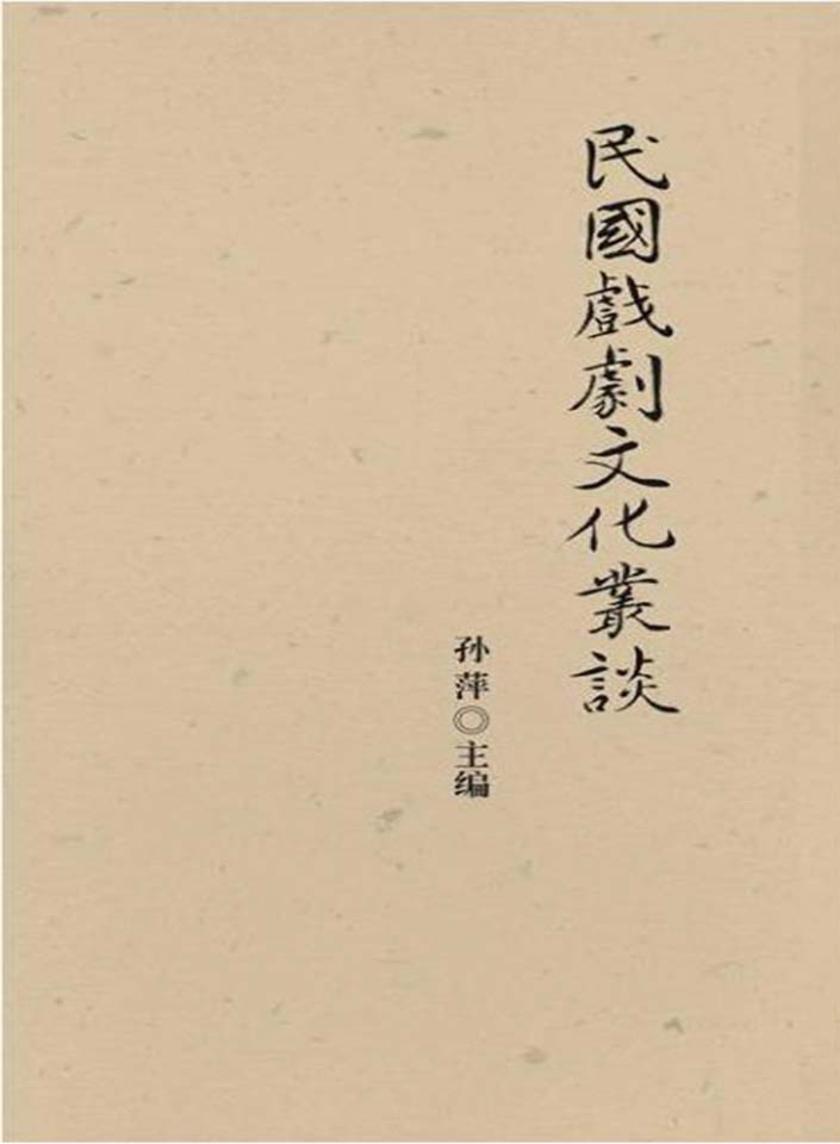 民國戲劇文化叢談
孙萍◎主编